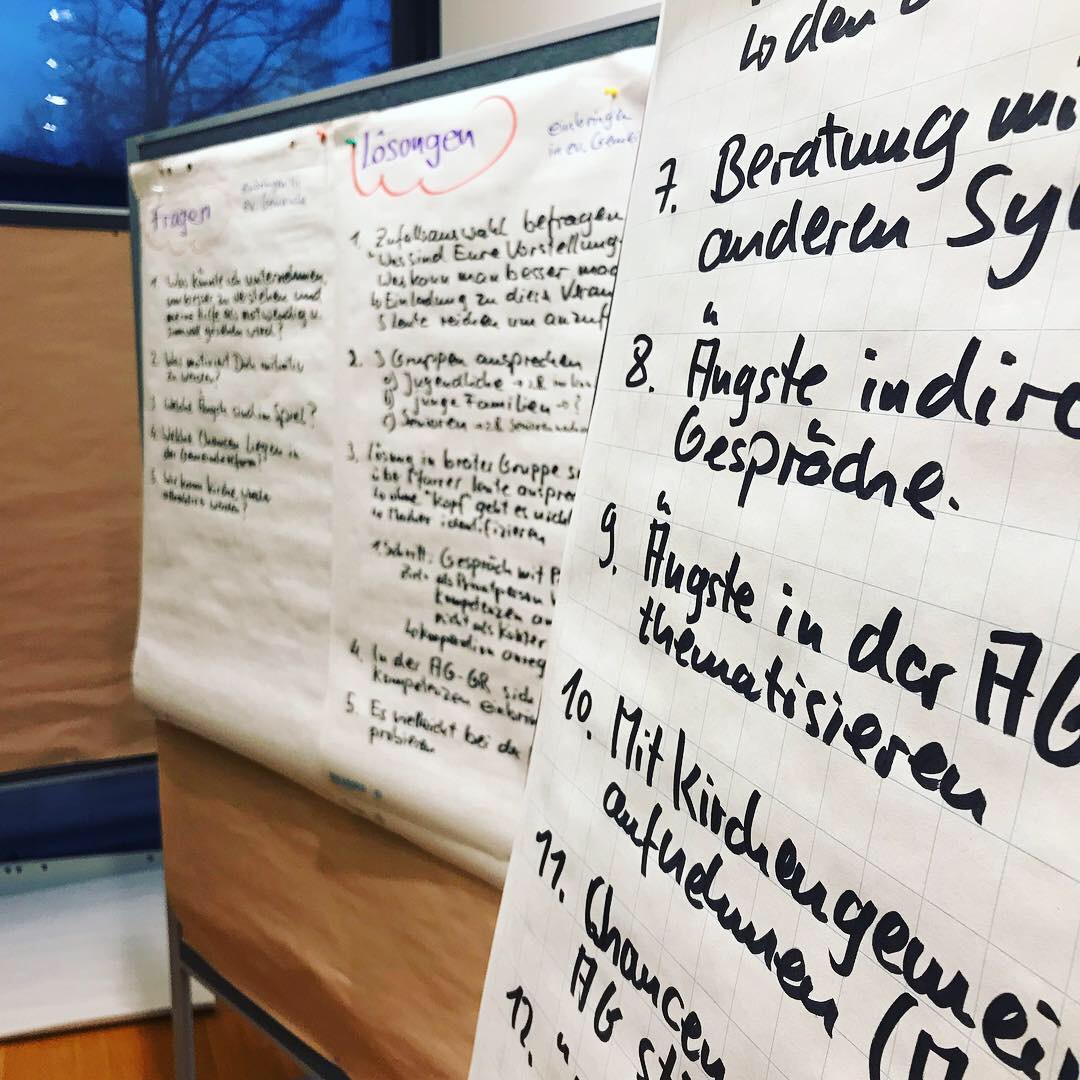 Fragen
einbringen in
ev. Gemeinde
1. Was könnte ich unternehmen,
um besser zu verstehen und
meine Hilfe als notwendig u.
sinnvoll gesehen wird?
2. Was motiviert Dich initiativ
zu werden?
3. Welche Ängste sind im Spiel?
4. Welche Chancen liegen in
der Gemeindereform?
5. Wie kann Kirche wieder
attraktiver werden?
Lösungen
einbringen
in ev. Gemei
1. Zufallsauswahl befragen
"Was sind Eure Vorstellung
Was kann man besser mac
↳ Einladung zu dieser Veran
5 Leute reichen um anzuf
2. 3 Gruppen ansprechen
a) Jugendliche →
b) junge Familien → ?
c) Senioren →
3. Lösung in breiter Gruppe s
über Pfarrer Leute anspre
↳ ohne "Kopf" geht es nicht
↳ Macher identifizieren
1. Schritt: Gespräch mit P
Ziel: als Privatperson
Kompetenzen an
nicht als Kantor
↳ Kooperation anreg
4. In der AG-GR sich
Kompetenzen einbrin
5. Es vielleicht bei de
probieren
↳ den
7. Beratung mi
anderen Sy
8. Ängste indire
Gespräche.
9. Ängste in der AG
thematisieren
10. Mit Kirchengemei
aufnehmen (
11. Chancen
AG st
12. "